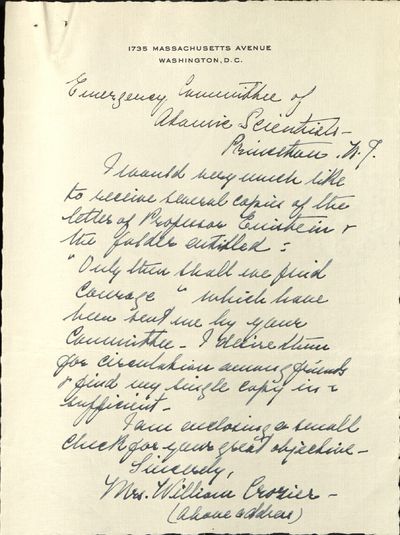 1735 MASSACHUSETTS AVENUE
WASHINGTON, D.C.
Emergency Committee of
Atomic Scientists -
Princeton, N.J.
I would very much like
to receive several copies of the
letter of Professor Einstein &
the folder entitled :
"Only then shall we find
Courage" which have
been sent me by your
Committee - I desire them
for circulation among friends
& find my single copy in-
sufficient -
I am enclosing a small
check for your great objective -
Sincerely,
Mrs. William Crozier -
(above address)